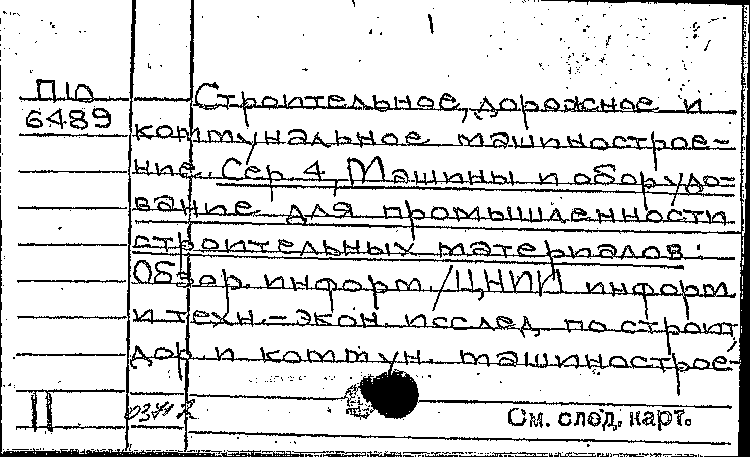 П10
6489
Строительное, дорожное и
коммунальное машинострое-
ние. Сер. 4, Машины и оборудо-
вание для промышленности
строительных материалов:
Обзор. информ. / ЦНИИ информ.
и техн.-экон. исслед. по строит.
дор. и коммун. машинострое-
II
См. след. карт.